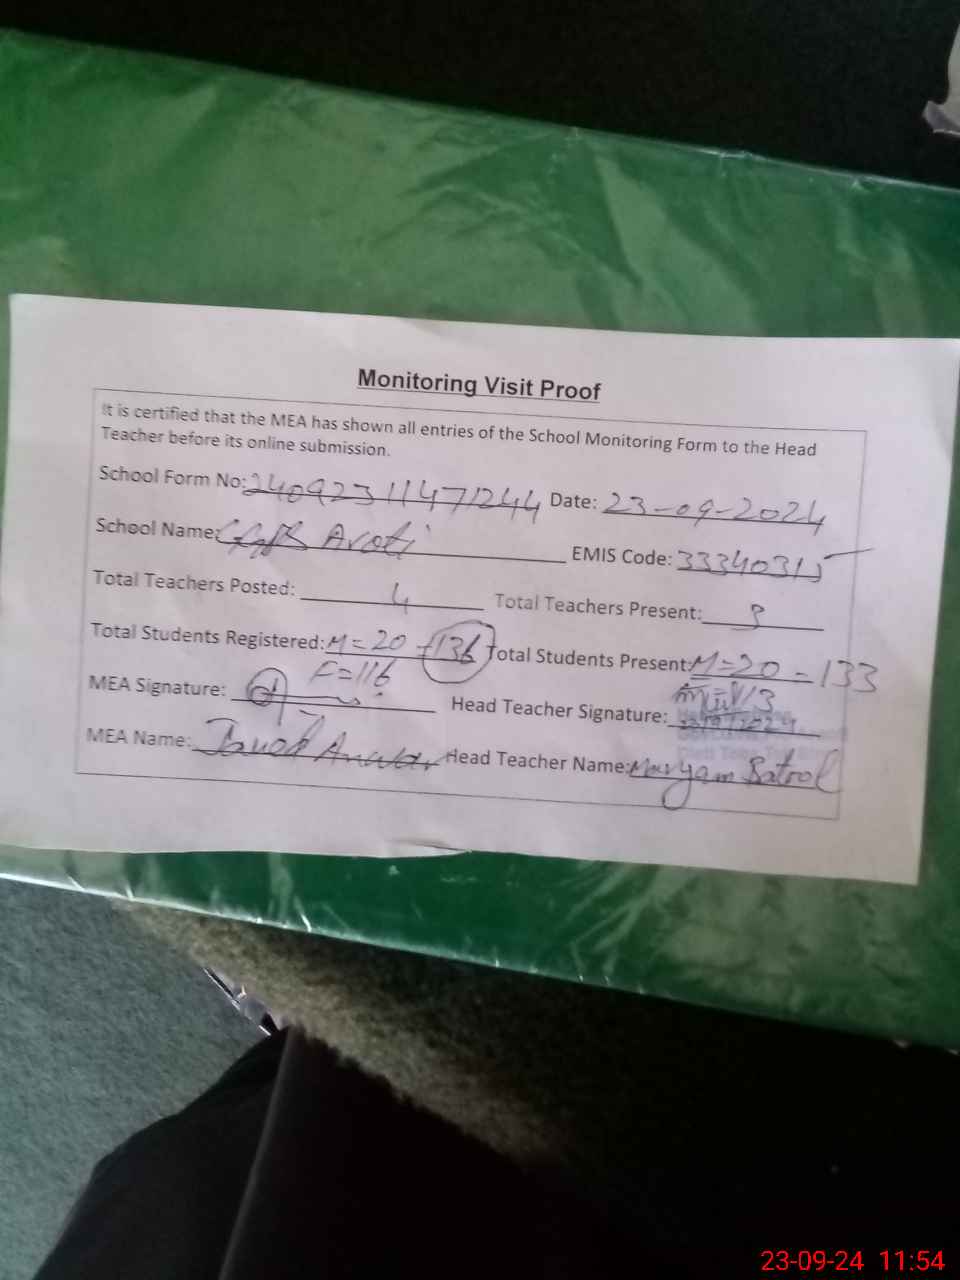 Monitoring Visit Proof
It is certified that the MEA has shown all entries of the School Monitoring Form to the Head
Teacher before its online submission.
School Form No: 24092311471244 Date: 23-09-2024
School Name: Aroti EMIS Code: 33340315
Total Teachers Posted: 4 Total Teachers Present: 3
Total Students Registered: M=20 136 Total Students Present: M=20 - 133
F=116
MEA Signature: Head Teacher Signature:
MEA Name: Anwar Head Teacher Name: Maryam Batool
23-09-24 11:54